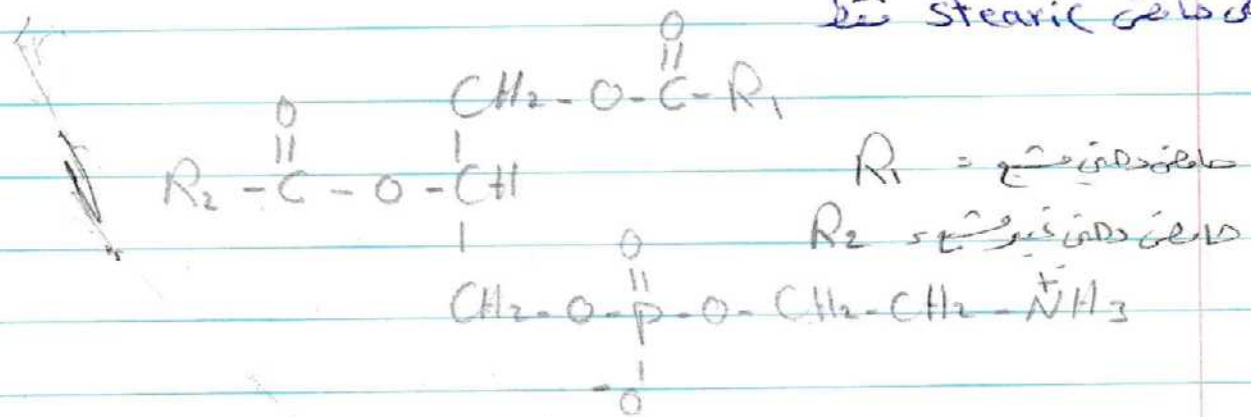 حامض stearic فقط
O
||
CH2-O-C-R1
O
||
R2-C-O-CH
R1 = حامض دهني مشبع
R2 = حامض دهني غير مشبع
O
||
CH2-O-P-O-CH2-CH2-NH3
+
-O